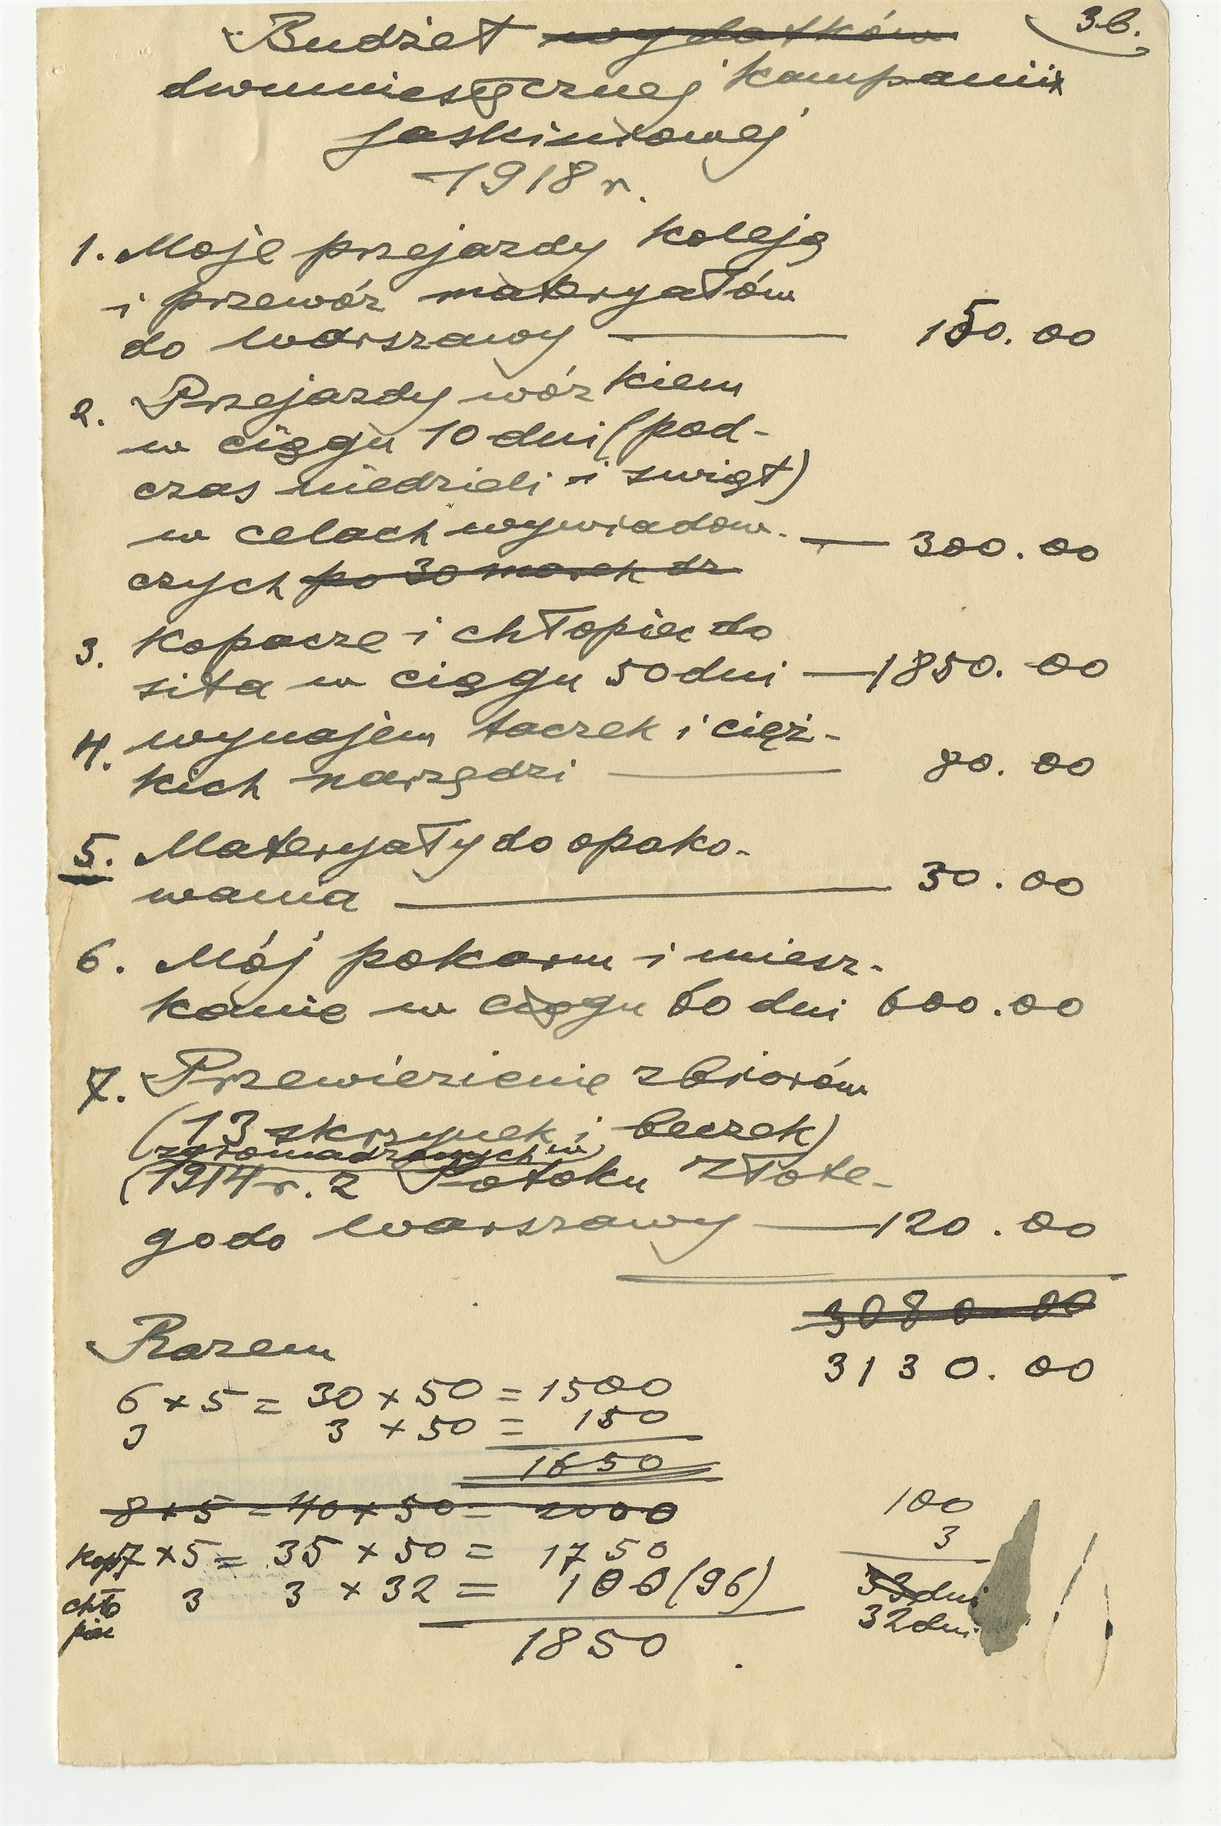 3b.
Budżet wydatków
dwumiesęcznej kampanii
jaskiniowej
1918 r.
1. Moje przejazdy koleją
i przewóz materyałów
do Warszawy — 150.00
2. Przejazdy wózkiem
w ciągu 10 dni (pod-
czas niedzieli i świąt)
w celach wywiadow- — 300.00
czych po 30 marek dz
3. Kopacze i chłopiec do
sita w ciągu 50 dni — 1850.00
4. wynajem taczek i cięż-
kich narzędzi — 80.00
5. Materyały do opako-
wania — 30.00
6. Mój pokarm i miesz-
kanie w ciągu 60 dni 600.00
7. Przewiezienie zbiorów
(13 skrzynek i beczek)
(zgromadzonych w
(1914 r. z Potoku Złote-
go do Warszawy — 120.00
3080.00
Razem
3130.00
6 x 5 = 30 x 50 = 1500
3 3 x 50 = 150
1650
8 x 5 = 40 x 50 = 2000
100
3
kop 7 x 5 = 35 x 50 = 1750
chło 3 3 x 32 = 100 (96)
piec
33 dni
32 dni
1850